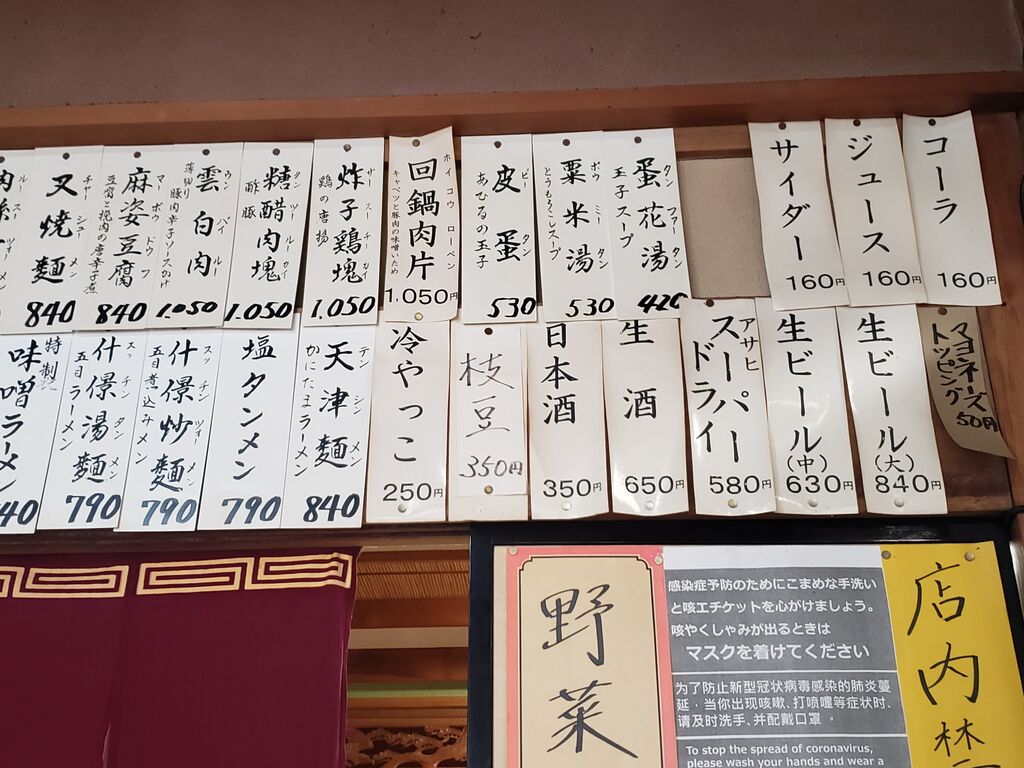 コーラ
160円
ジュース
160円
サイダー
160円
蛋花湯
タン ファー タン
玉子スープ
420
粟米湯
ボウ ミー タン
とうもろこしスープ
530
皮蛋
ピー タン
あひるの玉子
530
回鍋肉片
ホイ コウ ロー ペン
キャベツと豚肉の味噌いため
1,050円
炸子鶏塊
ザー スー チー カイ
鶏の唐揚
1,050
糖醋肉塊
タン ツー ルー カイ
酢豚
1,050
雲白肉
ウン パイ ルー
薄切り豚肉辛子ソースかけ
1.050
麻婆豆腐
マー ボウ ドウ フ
豆腐と挽肉の唐辛子煮
840
叉焼麺
チャー シュー メン
840
マヨネーズ
トッピング
50円
生ビール
(大)
840円
生ビール
(中)
630円
アサヒ
スーパー
ドライ
580円
生酒
650円
日本酒
350円
枝豆
350円
冷やっこ
250円
天津麺
テン シン メン
かにたまラーメン
840
塩タンメン
790
什憬炒麺
スッ チン ツォー メン
五目煮込みメン
790
什憬湯麺
スッ チン タン メン
五目ラーメン
790
特製
味噌ラーメン
野菜
感染症予防のためにこまめな手洗い
と咳エチケットを心がけましょう。
咳やくしゃみが出るときは
マスクを着けてください
为了防止新型冠状病毒感染的肺炎蔓
延，当你出现咳嗽、打喷嚏等症状时、
请及时洗手、并配戴口罩。
To stop the spread of coronavirus,
please wash your hands and wear a
店内禁